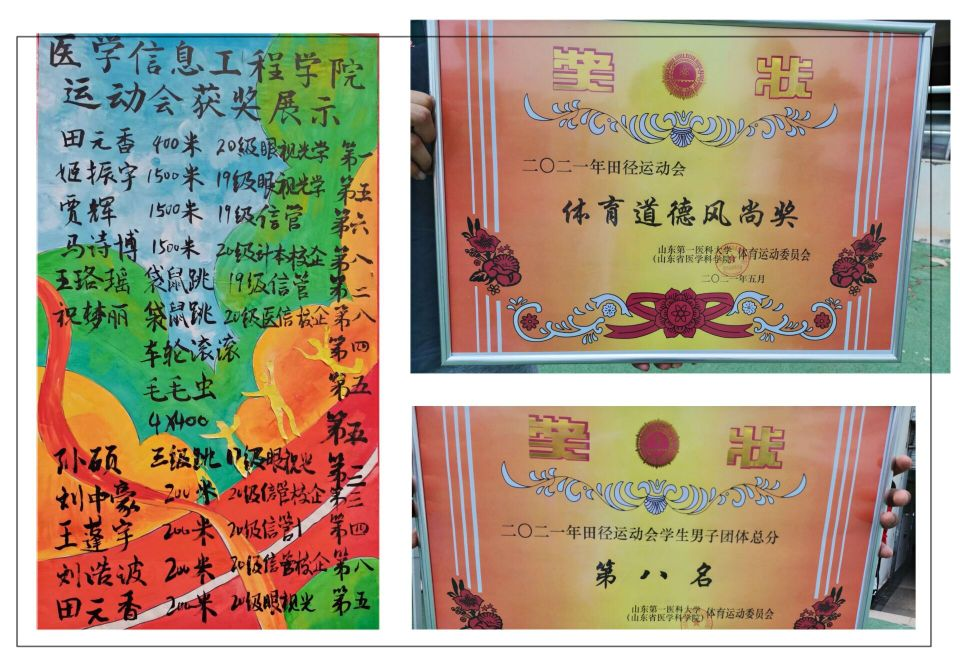 医学信息工程学院
运动会获奖展示
田元香 400米 20级眼视光学 第一
姬振宇 1500米 19级眼视光学 第五
贾辉 1500米 19级信管 第六
马诗博 1500米 20级计本校企 第八
王珞瑶 袋鼠跳 19级信管 第二
祝梦丽 袋鼠跳 20级医信校企 第八
车轮滚滚 第四
毛毛虫 第五
4×400 第五
孙硕 三级跳 19级眼视光 第二
刘中豪 200米 20级信管校企 第三
王蓬宇 200米 20级信管1 第四
刘浩波 200米 20级信管校企 第八
田元香 200米 20级眼视光 第五
奖状
二〇二一年田径运动会
体育道德风尚奖
山东第一医科大学
(山东省医学科学院) 体育运动委员会
二〇二一年五月
奖状
二〇二一年田径运动会学生男子团体总分
第八名
山东第一医科大学
(山东省医学科学院) 体育运动委员会